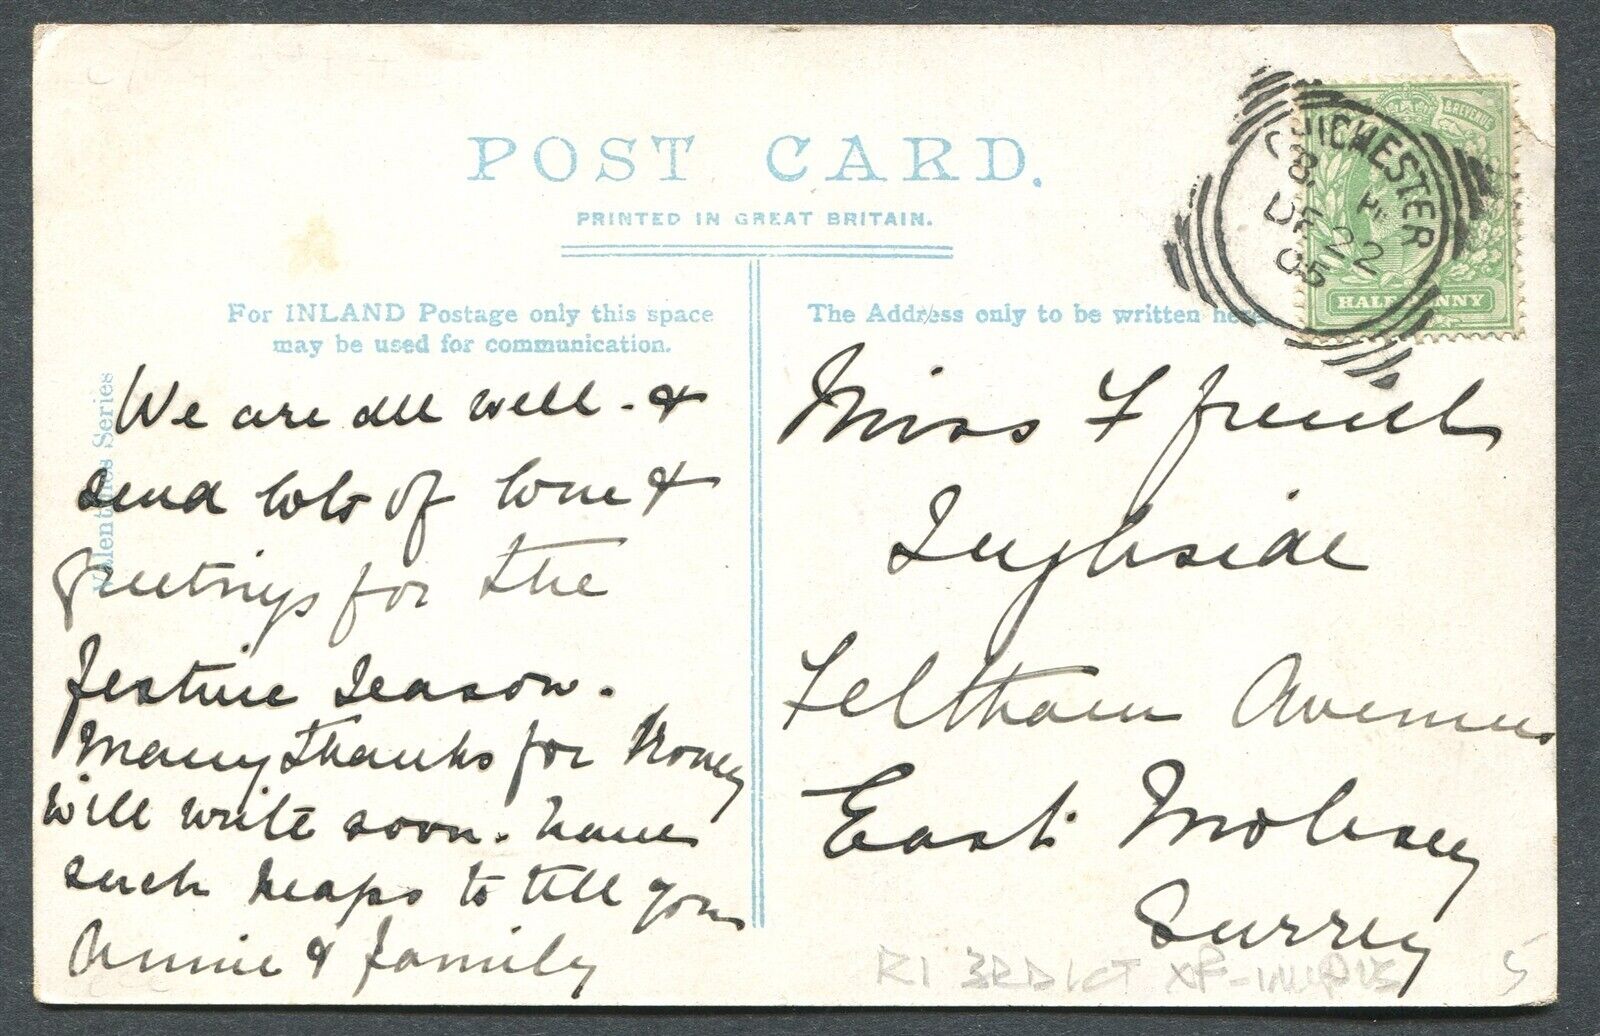 POST CARD.
PRINTED IN GREAT BRITAIN.
For INLAND Postage only this space
may be used for communication.
The Address only to be written here
Valentines Series
We are all well - &
send lots of love &
greetings for the
festive season.
Many thanks for Money
will write soon. have
such heaps to tell you
Annie & family
Miss F French
Inghside
Feltham Avenue
East Molesey
Surrey
HICHESTER
DE 22
05
& REVENUE
HALFPENNY
5